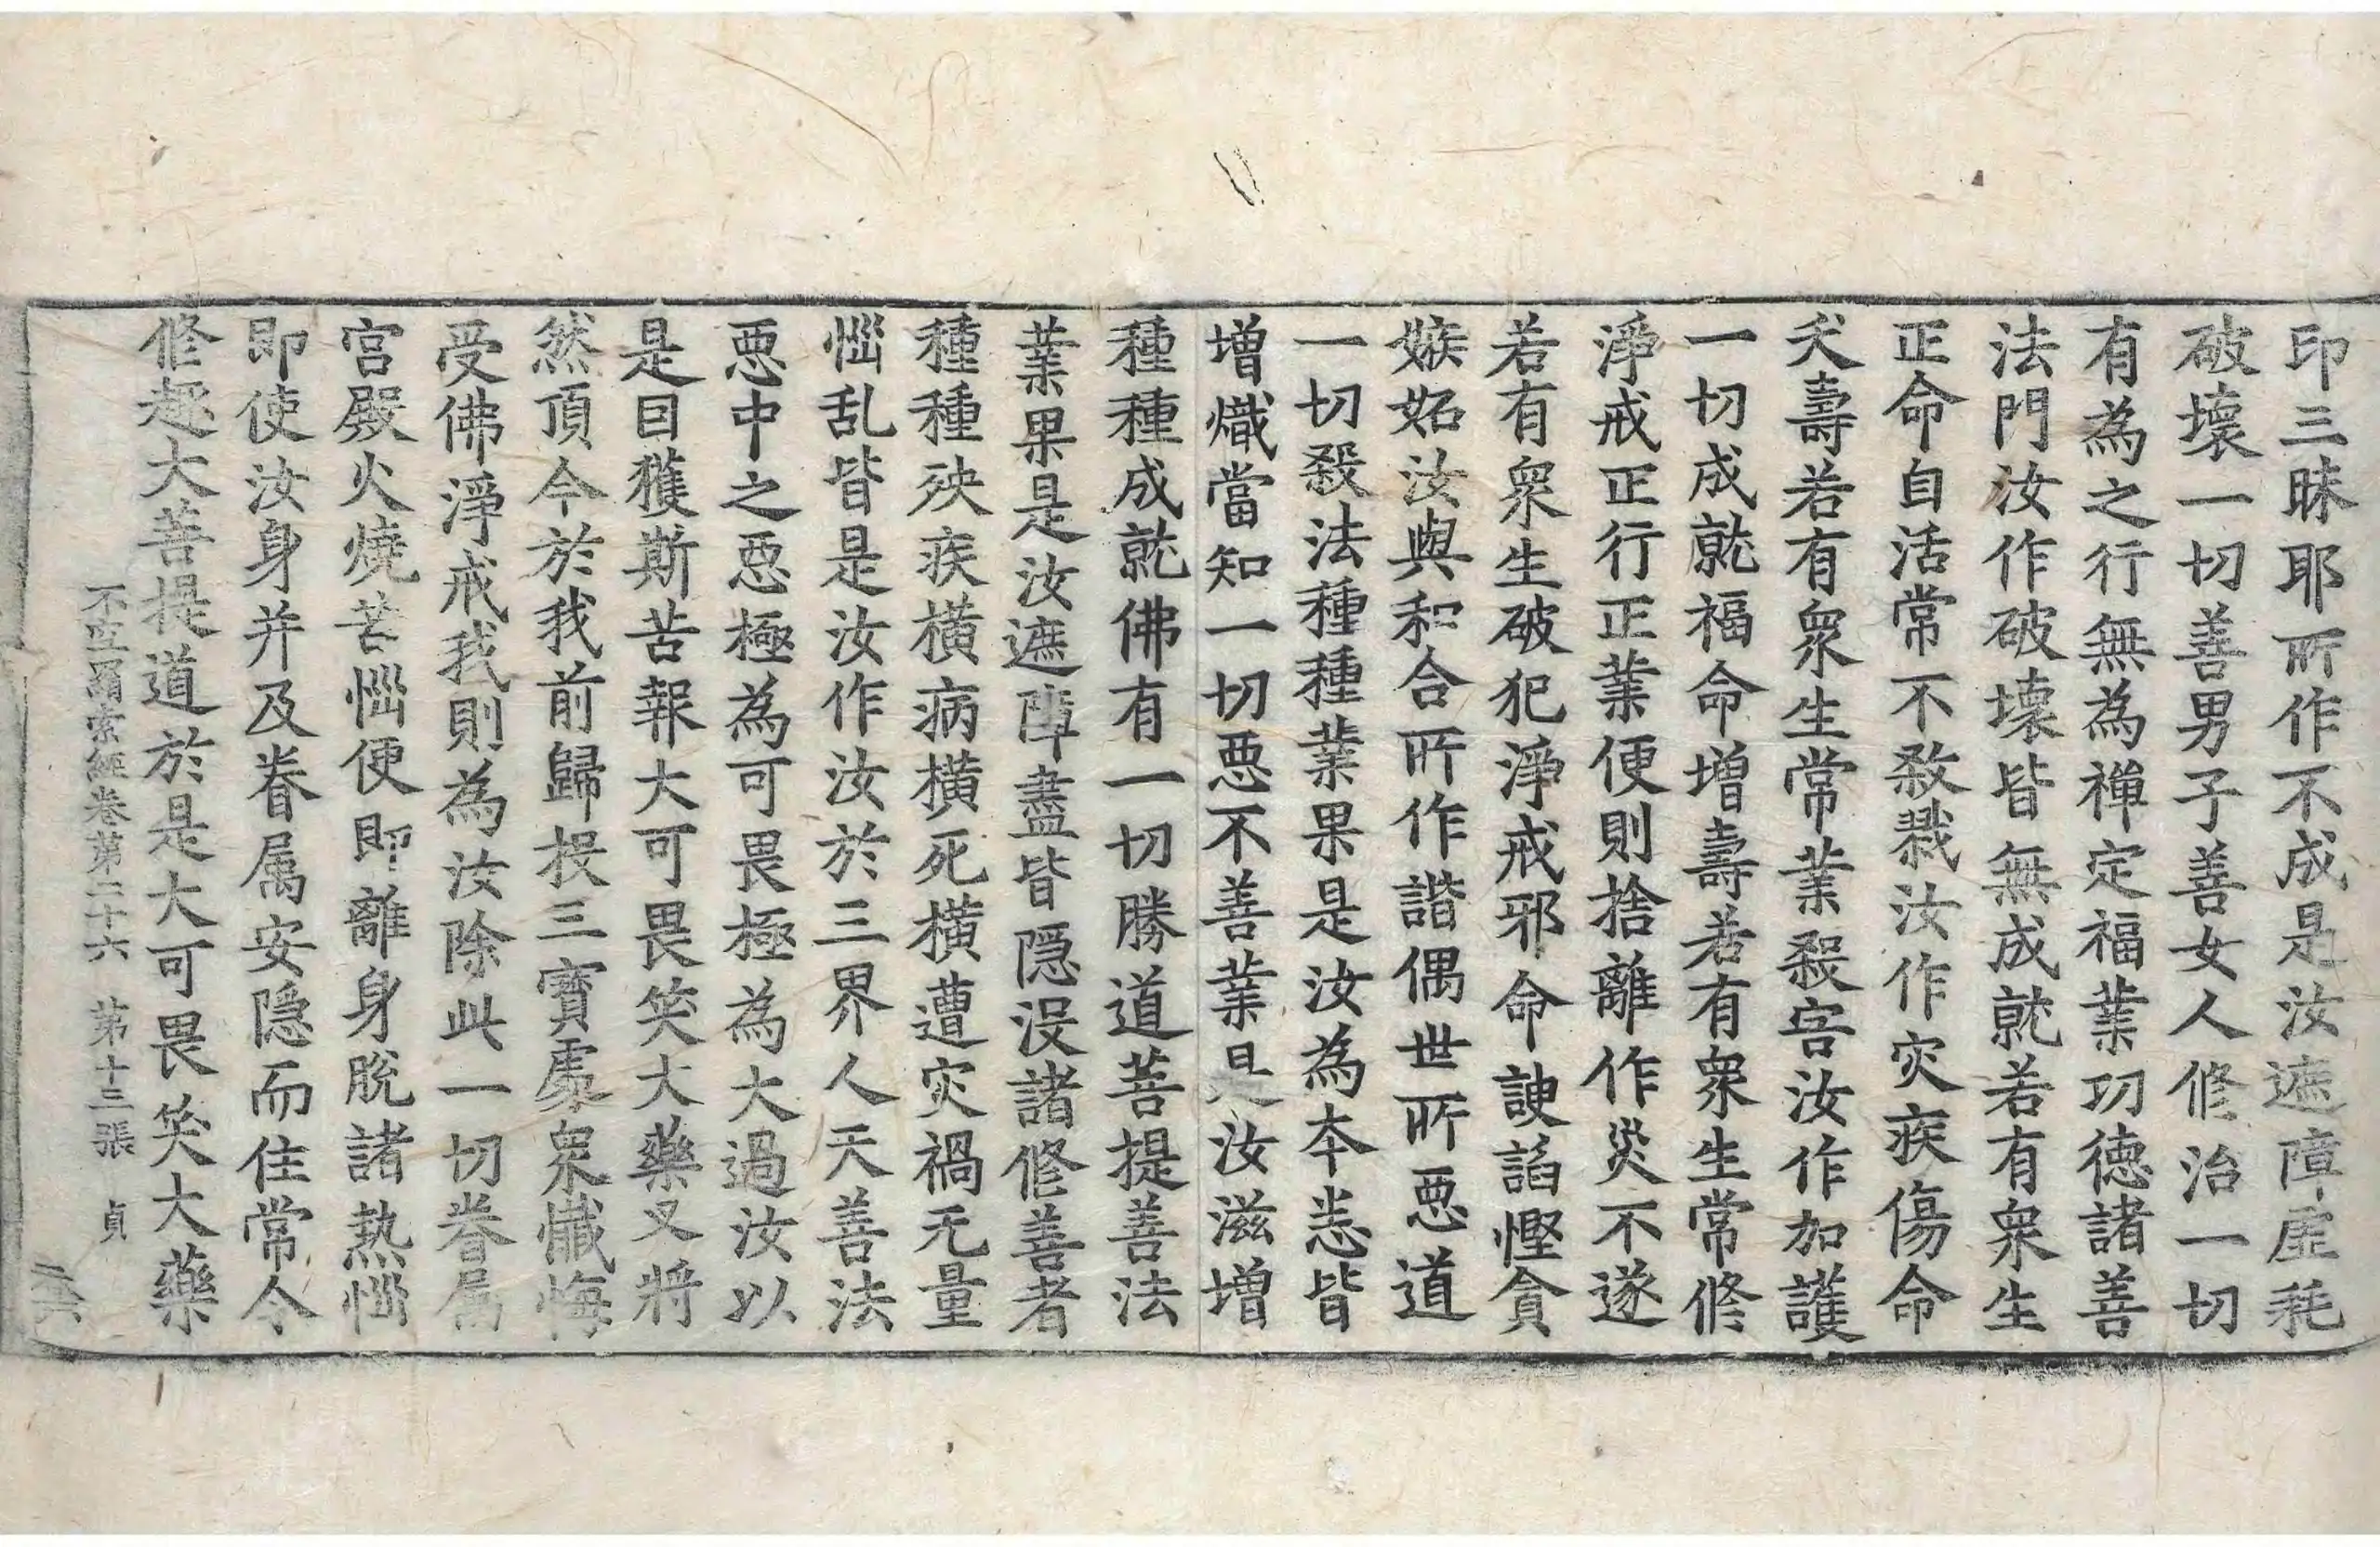 印三昧耶所作不成是汝遮障虛耗
破壞一切善男子善女人修治一切
有為之行無為禪定福業功德諸善
法門汝作破壞皆無成就若有衆生
正命自活常不殺戮汝作灾疾傷命
夭壽若有衆生常業殺害汝作加護
一切成就福命增壽若有衆生常修
淨戒正行正業便則捨離作災不遂
若有衆生破犯淨戒邪命諛諂慳貪
嫉妬汝與和合所作諧偶世所惡道
一切殺法種種業果是汝為本恙皆
增熾當知一切惡不善業是汝滋增
種種成就佛有一切勝道菩提善法
業果是汝遮障盡皆隱沒諸修善者
種種殃疾橫病橫死橫遭灾禍无量
惱乱皆是汝作汝於三界人天善法
惡中之惡極為可畏極為大過汝以
是因獲斯苦報大可畏笑大藥叉將
然頂今於我前歸投三寶處衆懺悔
受佛淨戒我則為汝除此一切眷属
宮殿火燒苦惱便即離身脫諸热惱
即使汝身并及眷属安隱而住常令
修趣大菩提道於是大可畏笑大藥
不空羂索經卷第二十六 第十三張 貞
二六